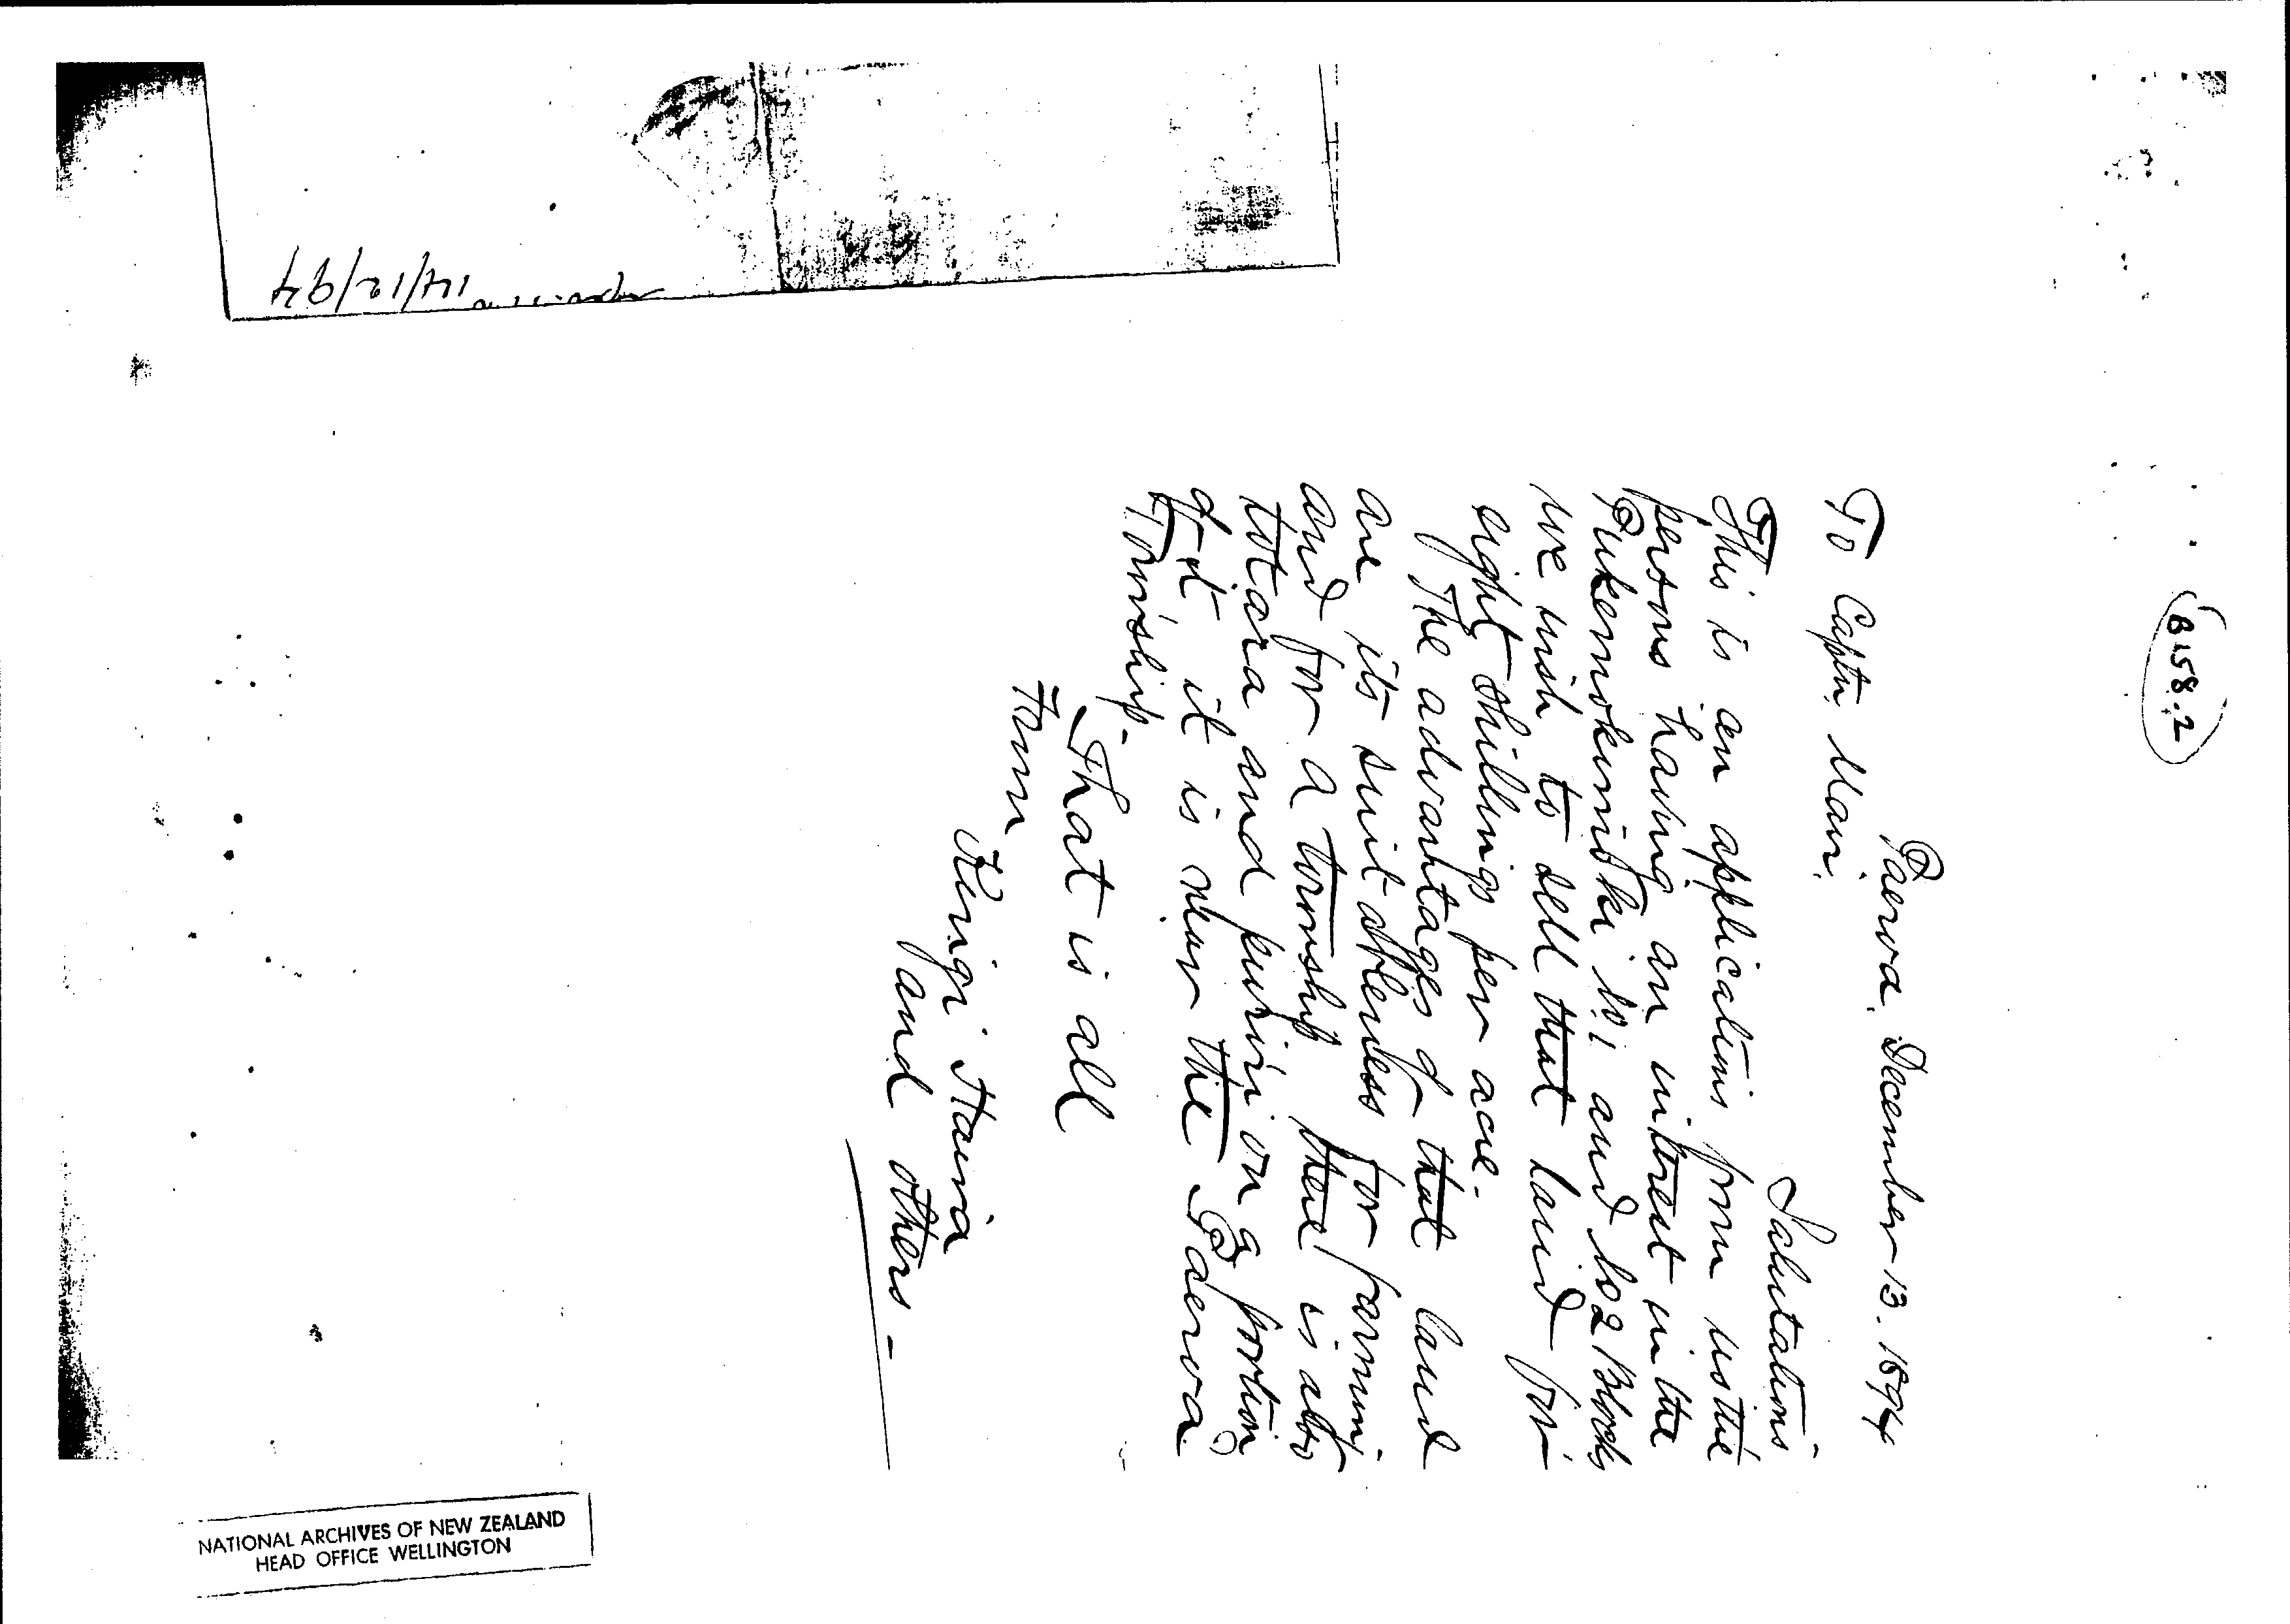 B158.2
Paeroa. December 13. 1894
To Captn. Mair.
Salutations
This is an applications from us the
persons having an intrest in the
Pukemokimoki No 1 and No 2 Block
we wish to sell that land for
eight shillings per acre.
The advantages of that land
are its suitableness for farming
and for a township there is also
totara and puriri on a portion
of it it is near the Paeroa
Township.
That is all
From
Kiingi
and others -
14/12/94
NATIONAL ARCHIVES OF NEW ZEALAND
HEAD OFFICE WELLINGTON